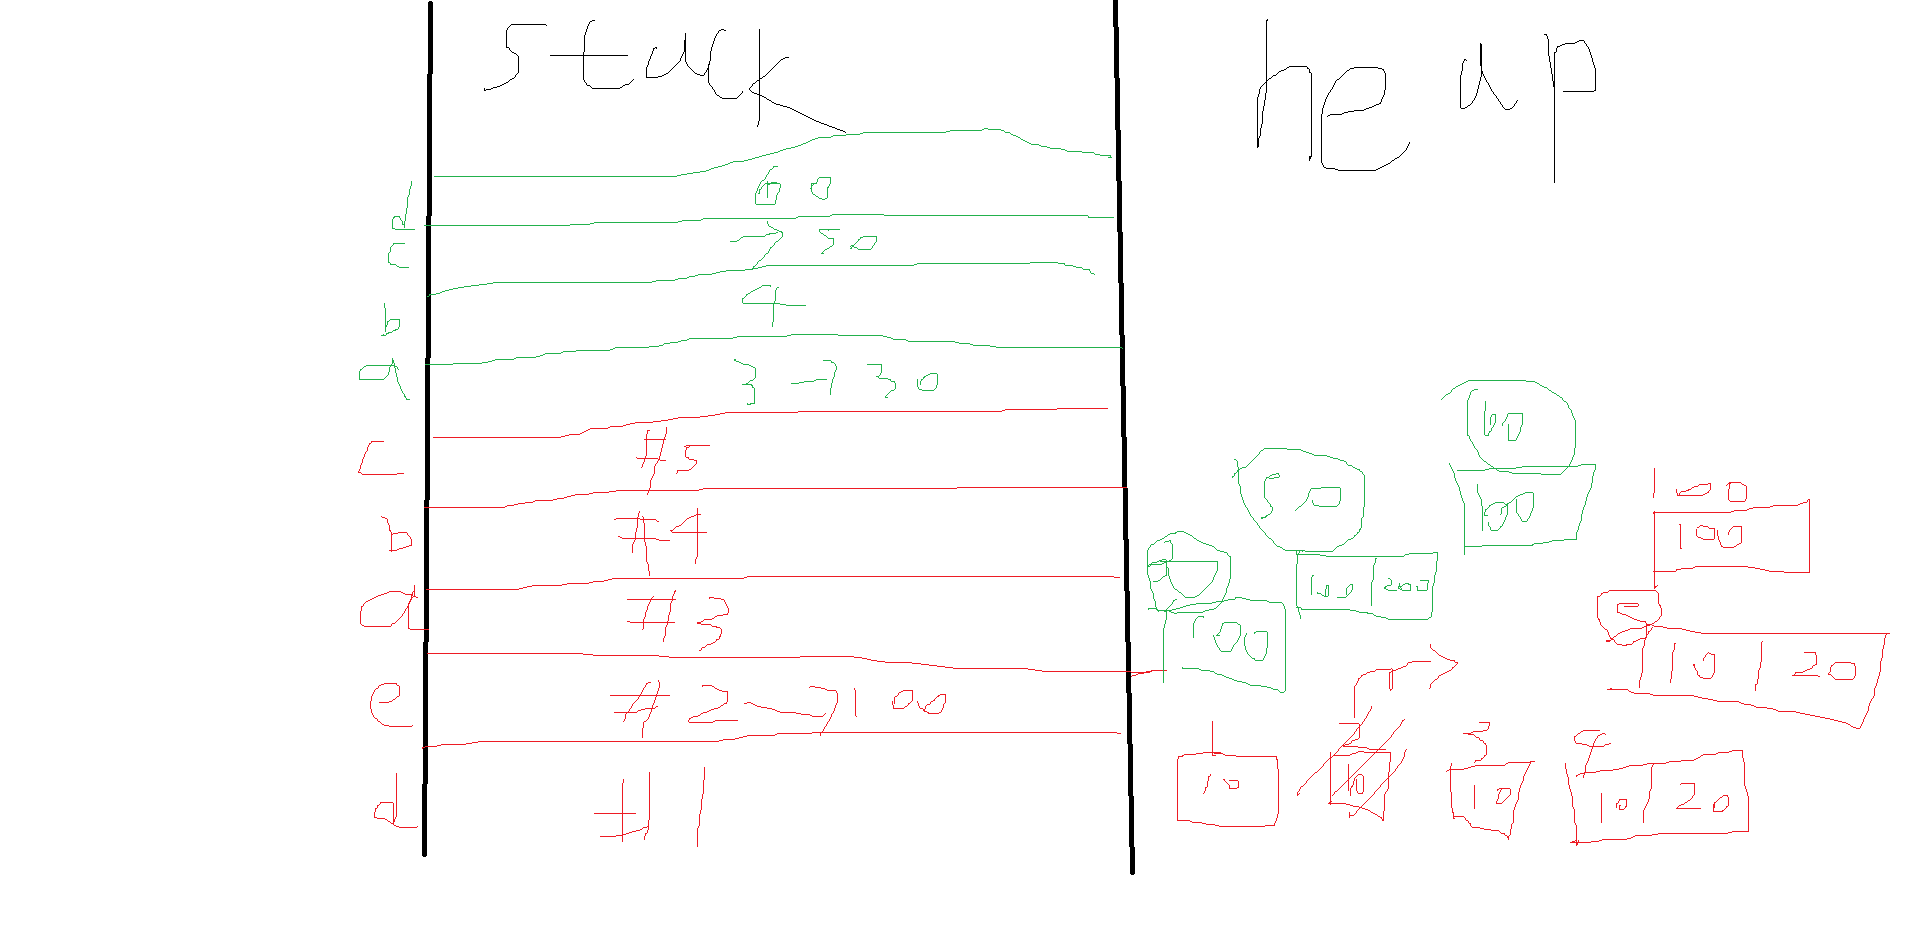 stack
heap
d 60
c → 50
b 4
a 3 → 30
c #5
b #4
a #3
e #2 → 100
d #1
60
100
50
100 200
100
100
100
5
10 20
1
10
2
10
3
10
4
10 20